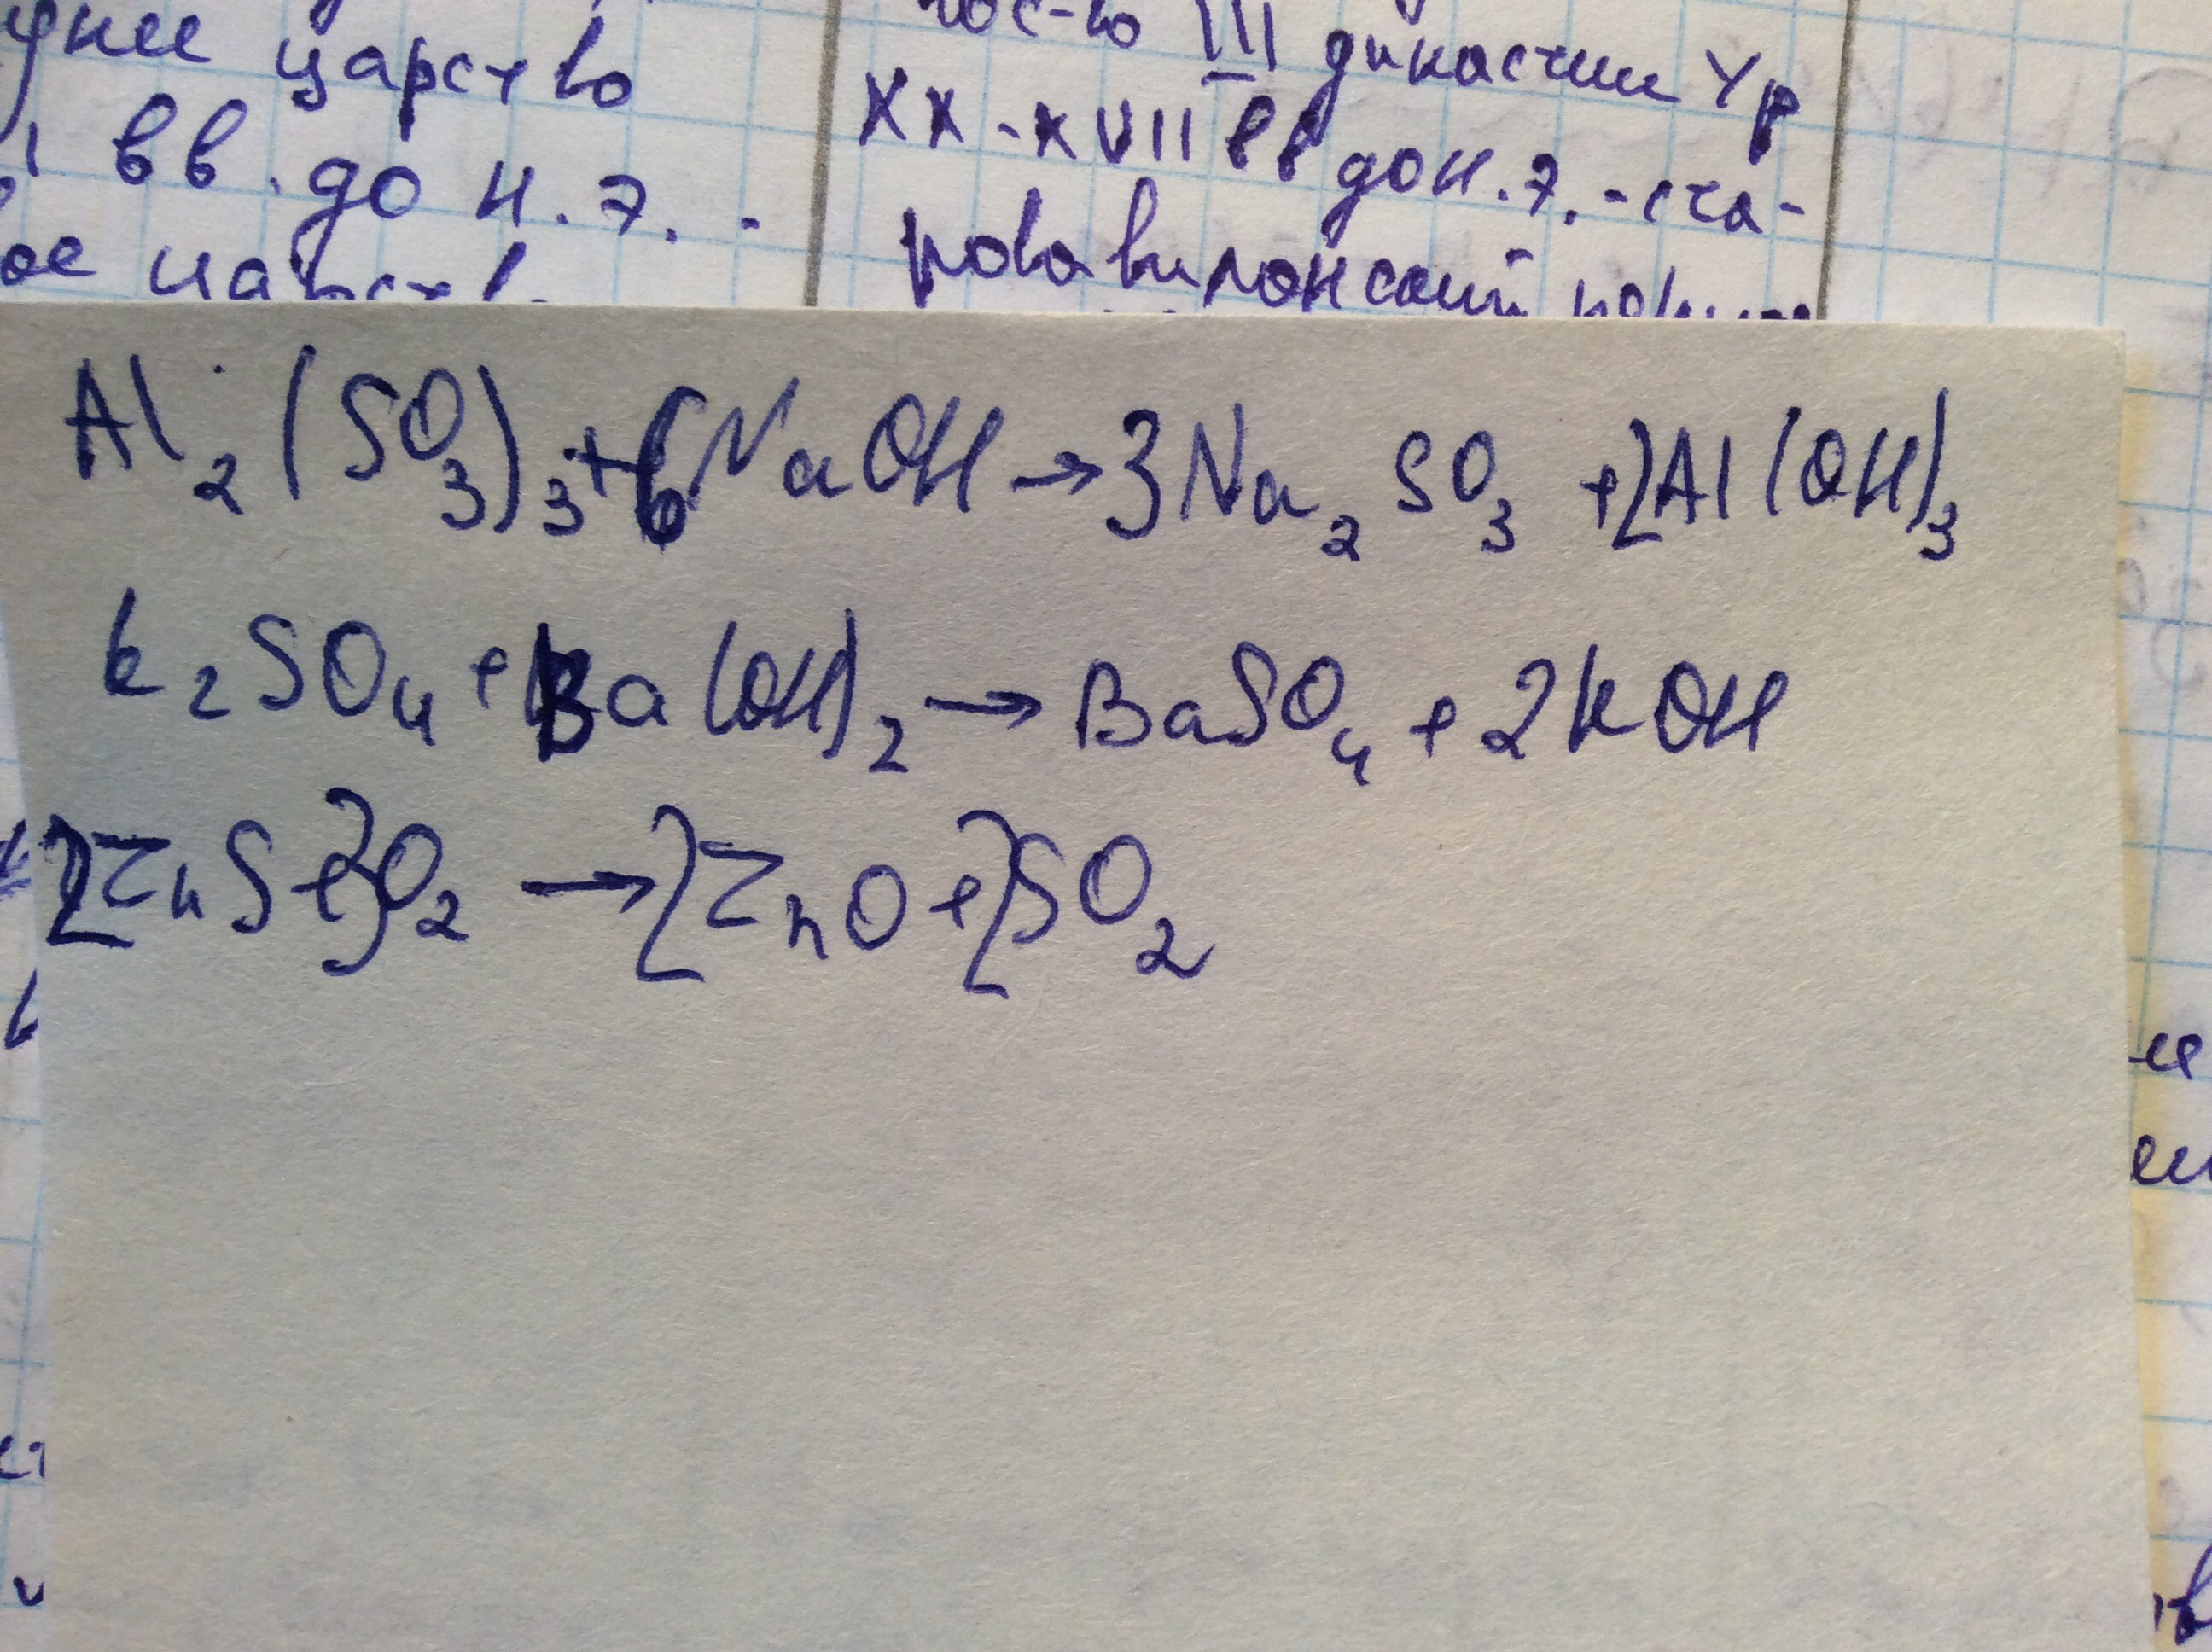 царство
вв. до н.э. -
III династии Ур
XX-XVII вв до н.э. - ста-
ровавилонский
Al₂(SO₃)₃+6NaOH→3Na₂SO₃+2Al(OH)₃
K₂SO₄+Ba(OH)₂→BaSO₄+2KOH
2ZnS+3O₂→2ZnO+2SO₂